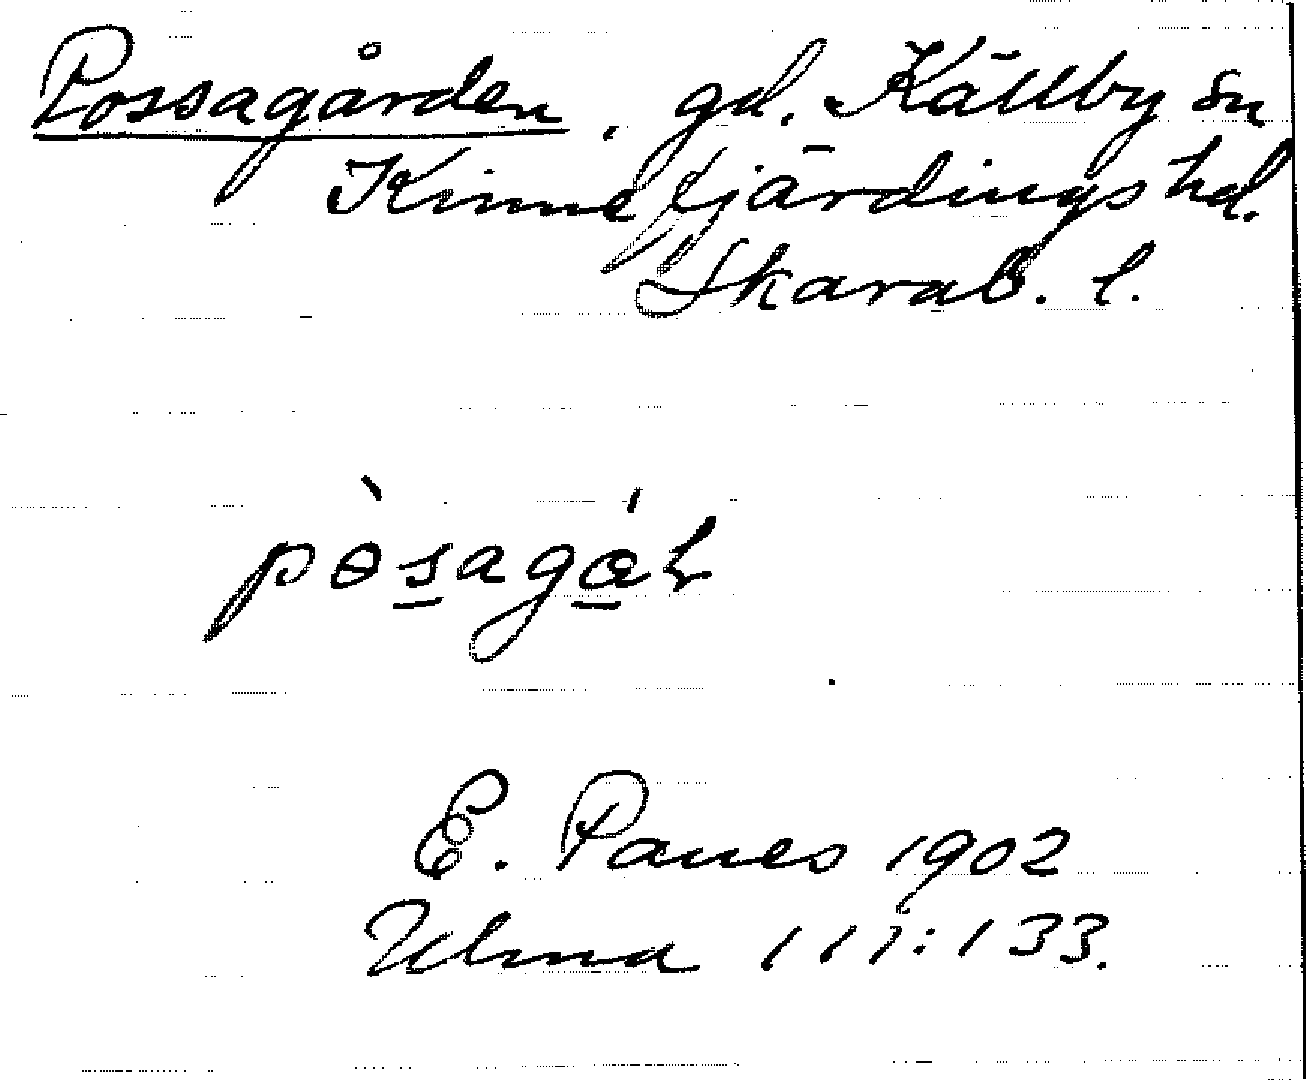 Possagården, gd. Källby sn
Kinnefjärdings hd.
Skarab. l.
pòsagá
E. Panes 1902
Ulma 111:133.